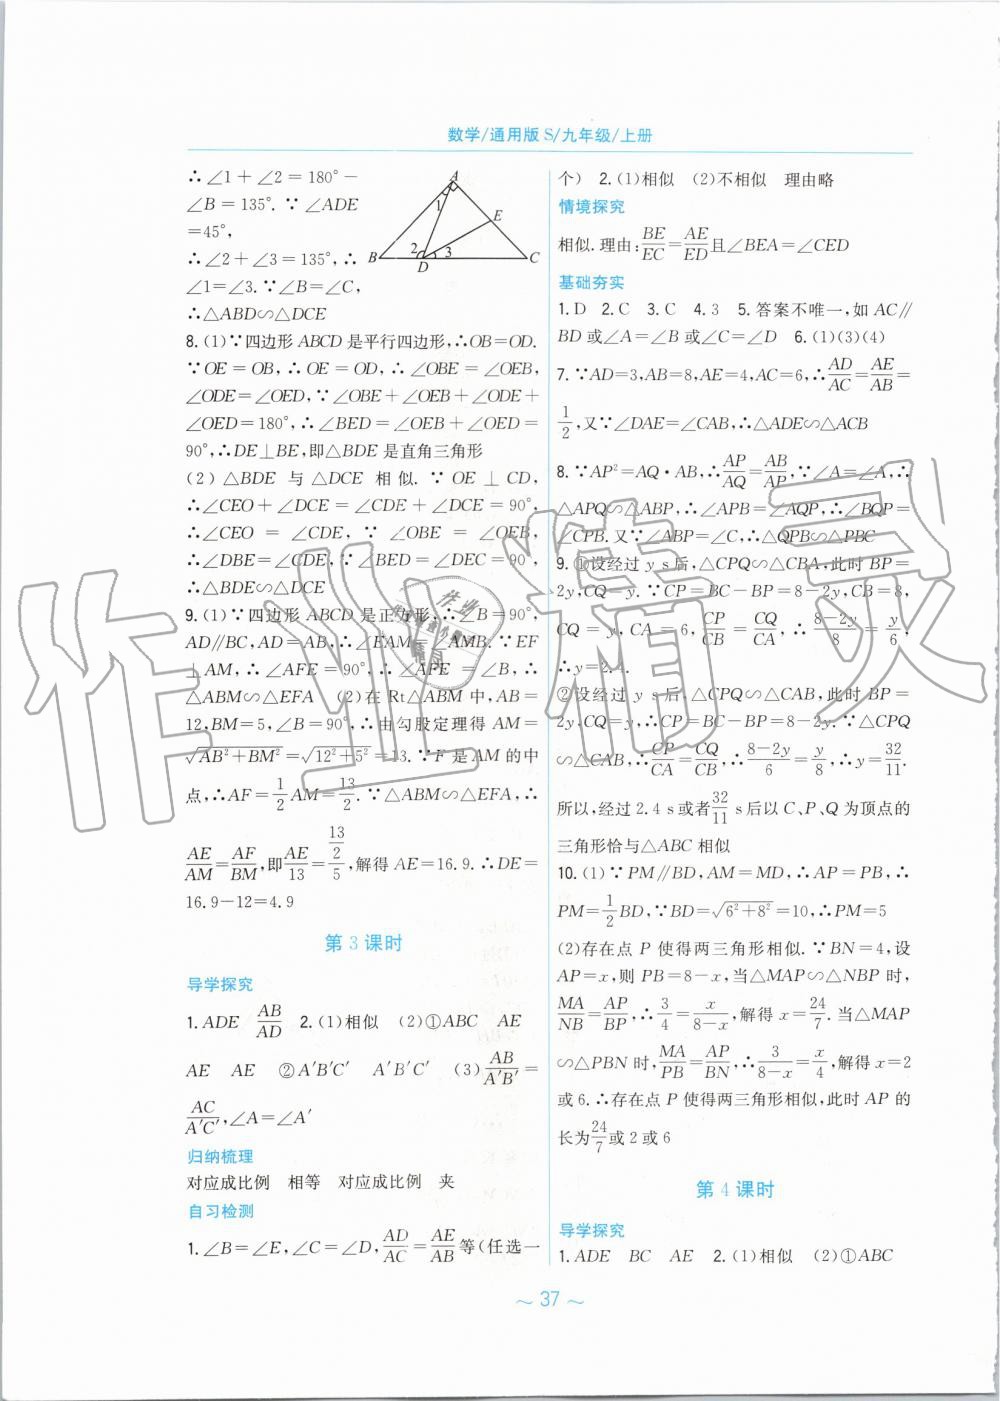 数学/通用版 S/九年级/上册
∴∠1+∠2=180°-
∠B=135°.∵∠ADE
=45°,
∴∠2+∠3=135°,∴
∠1=∠3.∵∠B=∠C,
∴△ABD∽△DCE
A
1
E
B
2
3
D
C
8.(1)∵四边形 ABCD 是平行四边形,∴OB=OD.
∵OE=OB,∴OE=OD,∴∠OBE=∠OEB,
∠ODE=∠OED.∵∠OBE+∠OEB+∠ODE+
∠OED=180°,∴∠BED=∠OEB+∠OED=
90°,∴DE⊥BE,即△BDE 是直角三角形
(2)△BDE 与△DCE 相似.∵OE⊥CD,
∴∠CEO+∠DCE=∠CDE+∠DCE=90°,
∴∠CEO=∠CDE,∵∠OBE=∠OEB,
∴∠DBE=∠CDE,∵∠BED=∠DEC=90°,
∴△BDE∽△DCE
9.(1)∵四边形 ABCD 是正方形,∴∠B=90°,
AD∥BC,AD=AB,∴∠EAM=∠AMB.∵EF
⊥AM,∴∠AFE=90°,∴∠AFE=∠B,∴
△ABM∽△EFA (2)在 Rt△ABM 中,AB=
12,BM=5,∠B=90°,∴由勾股定理得 AM=
√(AB²+BM²)=√(12²+5²)=13.∵F 是 AM 的中
点,∴AF=1/2 AM=13/2.∵△ABM∽△EFA,∴
AE/AM=AF/BM,即AE/13=(13/2)/5,解得 AE=16.9.∴DE=
16.9-12=4.9
第 3 课时
导学探究
1.ADE AB/AD 2.(1)相似 (2)①ABC AE
AE AE ②A′B′C′ A′B′C′ (3)AB/A′B′=
AC/A′C′,∠A=∠A′
归纳梳理
对应成比例 相等 对应成比例 夹
自习检测
1.∠B=∠E,∠C=∠D,AD/AC=AE/AB等(任选一
个) 2.(1)相似 (2)不相似 理由略
情境探究
相似.理由:BE/EC=AE/ED且∠BEA=∠CED
基础夯实
1.D 2.C 3.C 4.3 5.答案不唯一,如 AC∥
BD 或∠A=∠B 或∠C=∠D 6.(1)(3)(4)
7.∵AD=3,AB=8,AE=4,AC=6,∴AD/AC=AE/AB=
1/2,又∵∠DAE=∠CAB,∴△ADE∽△ACB
8.∵AP²=AQ·AB,∴AP/AQ=AB/AP,∵∠A=∠A,∴
△APQ∽△ABP,∴∠APB=∠AQP,∴∠BQP=
∠CPB.又∵∠ABP=∠C,∴△QPB∽△PBC
9.①设经过 y s后,△CPQ∽△CBA,此时 BP=
2y,CQ=y.∴CP=BC-BP=8-2y,CB=8,
CQ=y,CA=6,CP/CB=CQ/CA,∴(8-2y)/8=y/6,
∴y=2.4.
②设经过 y s后,△CPQ∽△CAB,此时 BP=
2y,CQ=y,∴CP=BC-BP=8-2y.∵△CPQ
∽△CAB,∴CP/CA=CQ/CB,∴(8-2y)/6=y/8,∴y=32/11.
所以,经过 2.4 s或者32/11 s后以 C、P、Q 为顶点的
三角形恰与△ABC 相似
10.(1)∵PM∥BD,AM=MD,∴AP=PB,∴
PM=1/2 BD,∵BD=√(6²+8²)=10,∴PM=5
(2)存在点 P 使得两三角形相似.∵BN=4,设
AP=x,则 PB=8-x,当△MAP∽△NBP 时,
MA/NB=AP/BP,∴3/4=x/(8-x),解得 x=24/7.当△MAP
∽△PBN 时,MA/PB=AP/BN,∴3/(8-x)=x/4,解得 x=2
或6.∴存在点 P 使得两三角形相似,此时 AP 的
长为24/7或 2 或 6
第 4 课时
导学探究
1.ADE BC AE 2.(1)相似 (2)①ABC
~ 37 ~
作业精灵